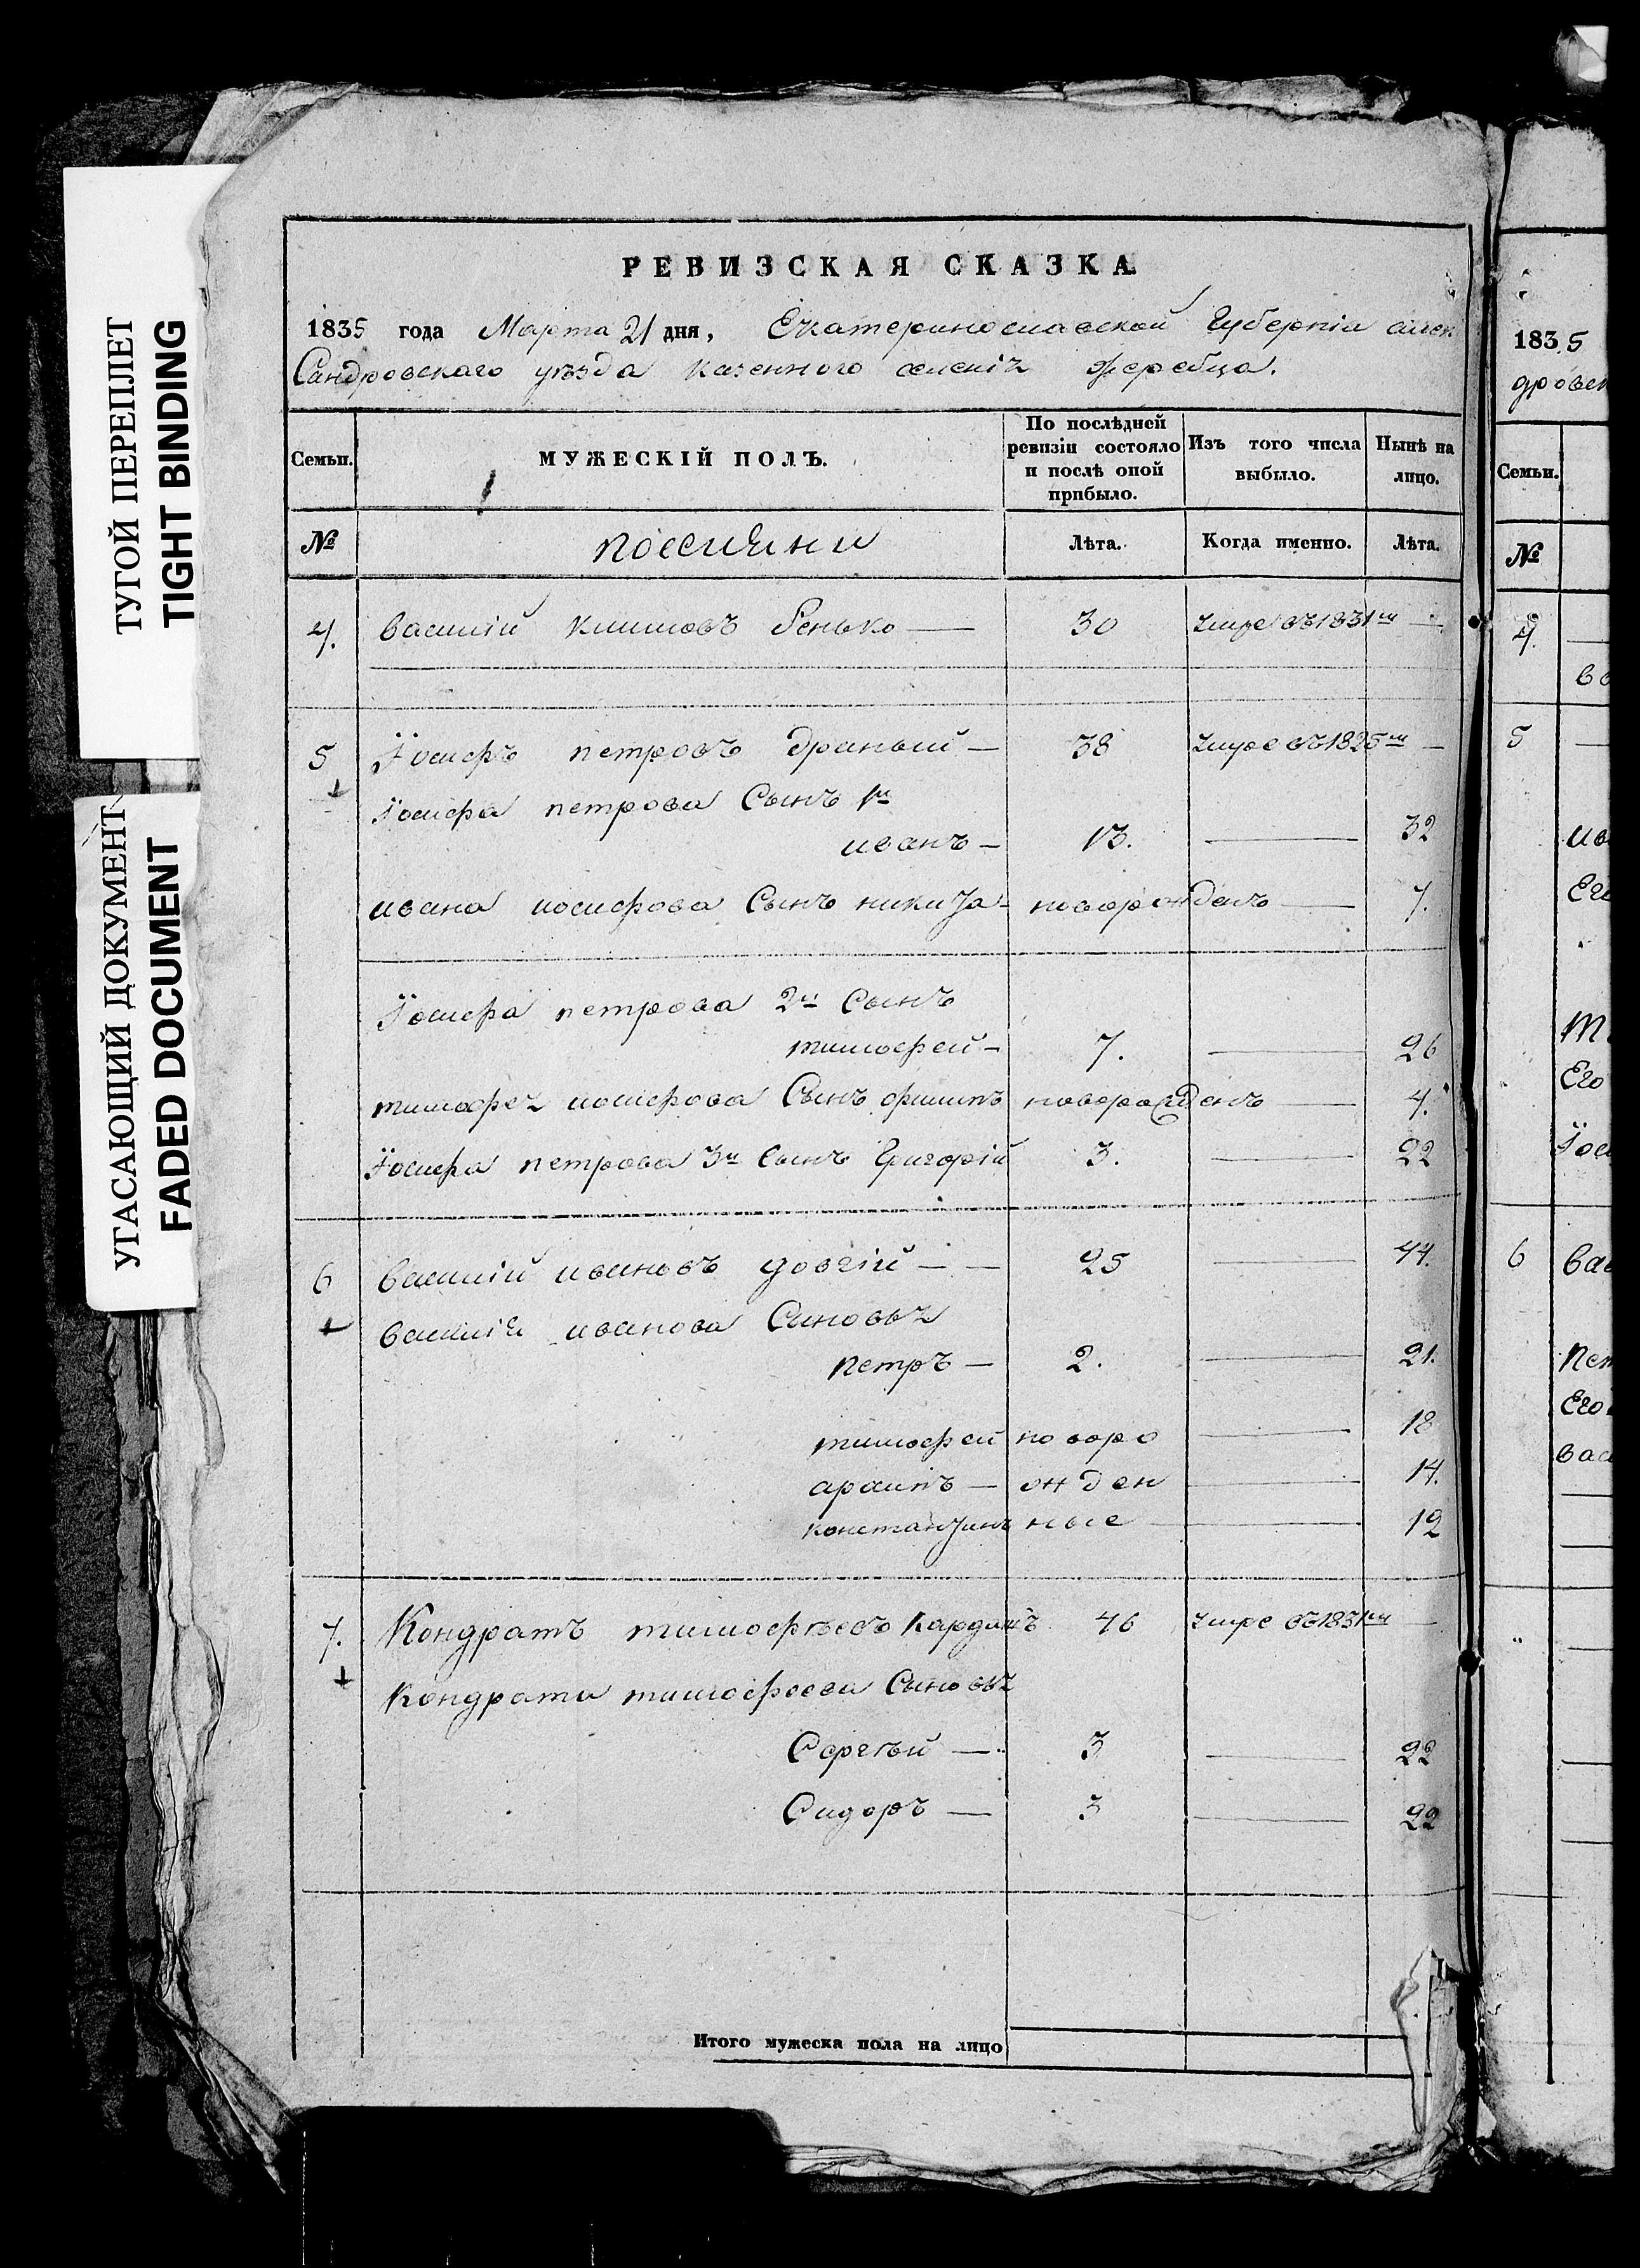 ТУГОЙ ПЕРЕПЛЕТ
TIGHT BINDING
УГАСАЮЩИЙ ДОКУМЕНТ
FADED DOCUMENT
РЕВИЗСКАЯ СКАЗКА.
1835 года Марта 21 дня, Екатеринославской Губерніи алек
Сандровского уѣзда казенного селенія Жеребца.
Семьи. МУЖЕСКІЙ ПОЛЪ. По послѣдней ревизіи состояло и послѣ оной прибыло. Изъ того числа выбыло. Нынѣ на лицо.
№ Лѣта. Когда именно. Лѣта.
4. василій климовъ Сенько — 30 умре въ 1831м —
5 Іосифъ петровъ драный — 38 умре въ 1825м —
Іосифа петрова Сынъ 1й
иванъ — 13. — 32
ивана иосифова Сынъ никита — новорожденъ — 7.
Іосифа петрова 2й Сынъ
тимофей — 7. — 26
тимофея иосифова Сынъ филипъ новорожденъ — 4.
Іосифа петрова 3й Сынъ Григорій 3. — 22
6 василій ивановъ довгій — — 25 — 44.
василія иванова Сыновья
петръ — 2. — 21.
тимофей новоро — 18
архипъ — жден — 14.
константинъ ные — 12
7. Кондратъ тимофѣевъ кардашъ 46 умре въ 1831м —
Кондрата тимофеева Сыновья
Сергѣй — 3 — 22
Сидоръ — 3 — 22
Итого мужеска пола на лицо
1835
дровск
Семьи.
№
4.
5
ив
Его
Его
Іоси
6 Вас
Пет
Его
вас